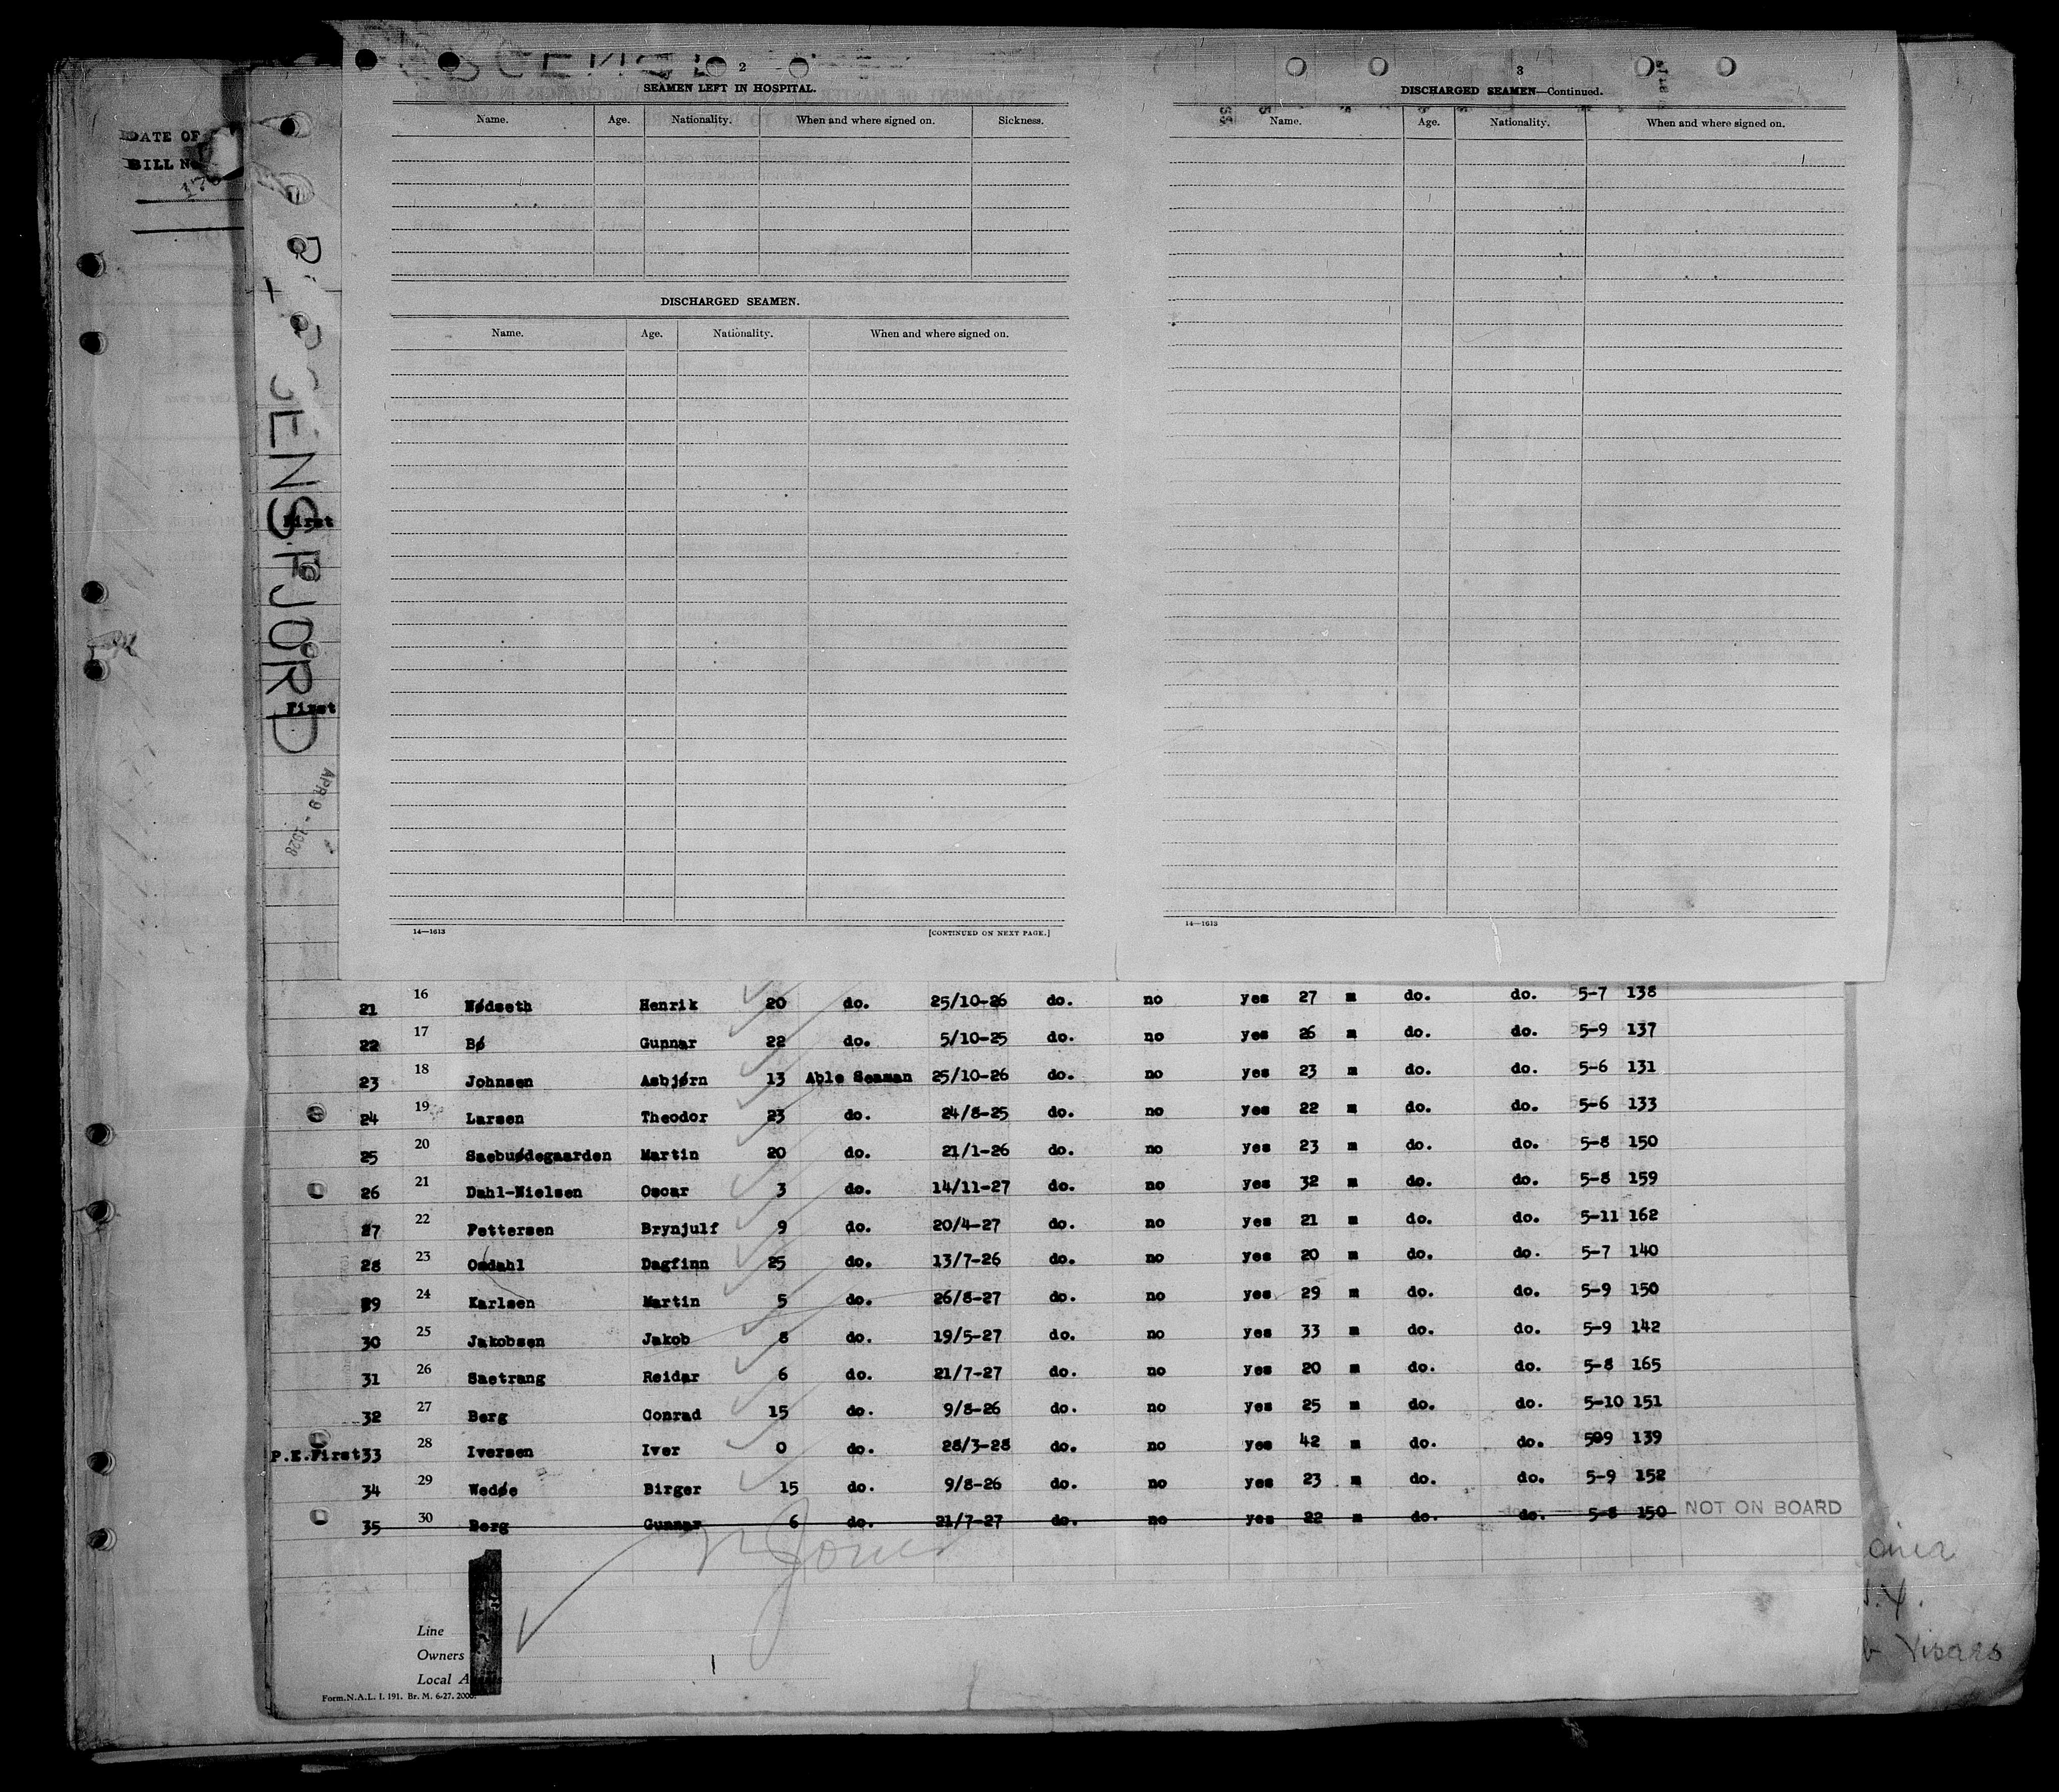 DATE OF
BILL N
BERGENSFJORD
First
First
APR 9 - 1928
2
SEAMEN LEFT IN HOSPITAL.
Name. Age. Nationality. When and where signed on. Sickness.
DISCHARGED SEAMEN.
Name. Age. Nationality. When and where signed on.
14—1613 [CONTINUED ON NEXT PAGE.]
3
DISCHARGED SEAMEN—Continued.
Name. Age. Nationality. When and where signed on.
14—1613
21 16 Nødseth Henrik 20 do. 25/10-26 do. no yes 27 m do. do. 5-7 138
22 17 Bø Gunnar 22 do. 5/10-25 do. no yes 26 m do. do. 5-9 137
23 18 Johnsen Asbjørn 13 Able Seaman 25/10-26 do. no yes 23 m do. do. 5-6 131
24 19 Larsen Theodor 23 do. 24/8-25 do. no yes 22 m do. do. 5-6 133
25 20 Saebuødegaarden Martin 20 do. 21/1-26 do. no yes 23 m do. do. 5-8 150
26 21 Dahl-Nielsen Oscar 3 do. 14/11-27 do. no yes 32 m do. do. 5-8 159
27 22 Pettersen Brynjulf 9 do. 20/4-27 do. no yes 21 m do. do. 5-11 162
28 23 Omdahl Dagfinn 25 do. 13/7-26 do. no yes 20 m do. do. 5-7 140
29 24 Karlsen Martin 5 do. 26/8-27 do. no yes 29 m do. do. 5-9 150
30 25 Jakobsen Jakob 8 do. 19/5-27 do. no yes 33 m do. do. 5-9 142
31 26 Saetrang Reidar 6 do. 21/7-27 do. no yes 20 m do. do. 5-8 165
32 27 Berg Conrad 15 do. 9/8-26 do. no yes 25 m do. do. 5-10 151
P.E.First 33 28 Iversen Iver 0 do. 28/3-28 do. no yes 42 m do. do. 509 139
34 29 Wedøe Birger 15 do. 9/8-26 do. no yes 23 m do. do. 5-9 152
35 30 Berg Gunnar 6 do. 21/7-27 do. no yes 22 m do. do. 5-8 150 NOT ON BOARD
Jones
Line
Owners
Local A
Form.N.A.L. I. 191. Br. M. 6-27. 2000.
Visaes